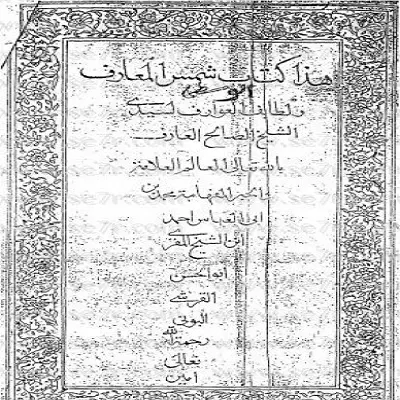 هذا كتاب شمس المعارف
ولطائف العوارف لسيدي
الشيخ الصالح العارف
بالله تعالى العالم العلامة
ابي العباس احمد
ابن الشيخ المقري
ابو الحسن
القرشي
البوني
رحمه الله
تعالى
امين